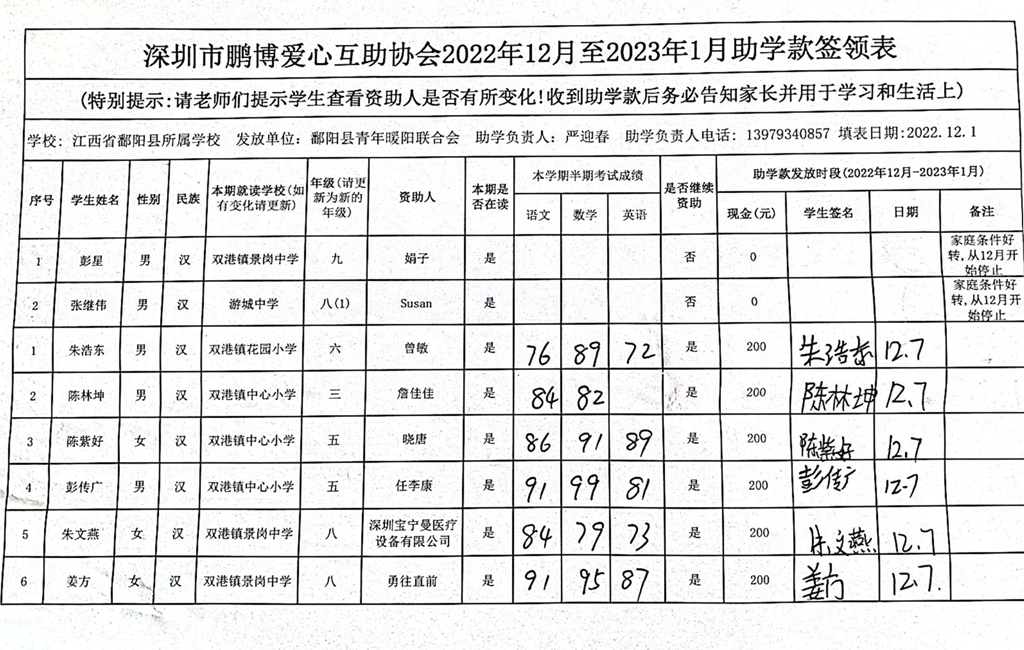 深圳市鹏博爱心互助协会2022年12月至2023年1月助学款签领表
(特别提示:请老师们提示学生查看资助人是否有所变化!收到助学款后务必告知家长并用于学习和生活上)
学校: 江西省鄱阳县所属学校 发放单位: 鄱阳县青年暖阳联合会 助学负责人: 严迎春 助学负责人电话: 13979340857 填表日期:2022.12.1
序号 学生姓名 性别 民族 本期就读学校(如有变化请更新) 年级(请更新为新的年级) 资助人 本期是否在读 本学期半期考试成绩 是否继续资助 助学款发放时段(2022年12月-2023年1月)
语文 数学 英语 现金(元) 学生签名 日期 备注
1 彭星 男 汉 双港镇景岗中学 九 娟子 是 否 0 家庭条件好转,从12月开始停止
2 张继伟 男 汉 游城中学 八(1) Susan 是 否 0 家庭条件好转,从12月开始停止
1 朱浩东 男 汉 双港镇花园小学 六 曾敏 是 76 89 72 是 200 朱浩东 12.7
2 陈林坤 男 汉 双港镇中心小学 三 詹佳佳 是 84 82 是 200 陈林坤 12.7
3 陈紫好 女 汉 双港镇中心小学 五 晓唐 是 86 91 89 是 200 陈紫好 12.7
4 彭传广 男 汉 双港镇中心小学 五 任李康 是 91 99 81 是 200 彭传广 12.7
5 朱文燕 女 汉 双港镇景岗中学 八 深圳宝宁曼医疗设备有限公司 是 84 79 73 是 200 朱文燕 12.7
6 姜方 女 汉 双港镇景岗中学 八 勇往直前 是 91 95 87 是 200 姜方 12.7.